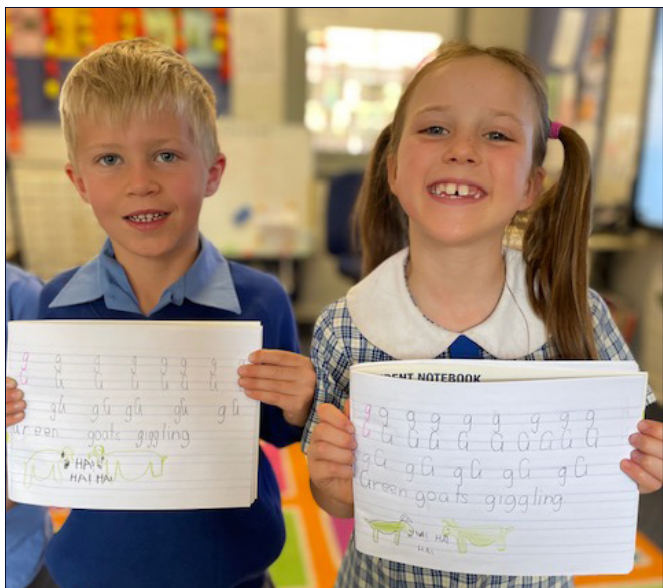 g g g g g g g
G G G G G G G
gG gG gG gG gG
Green goats giggling
HA!
HA! HA!
DENT NOTEBOOK
g g g g g g g g g
G G G G G G G G
gG gG gG gG gG
Green goats giggling
HA! HA!
HA!